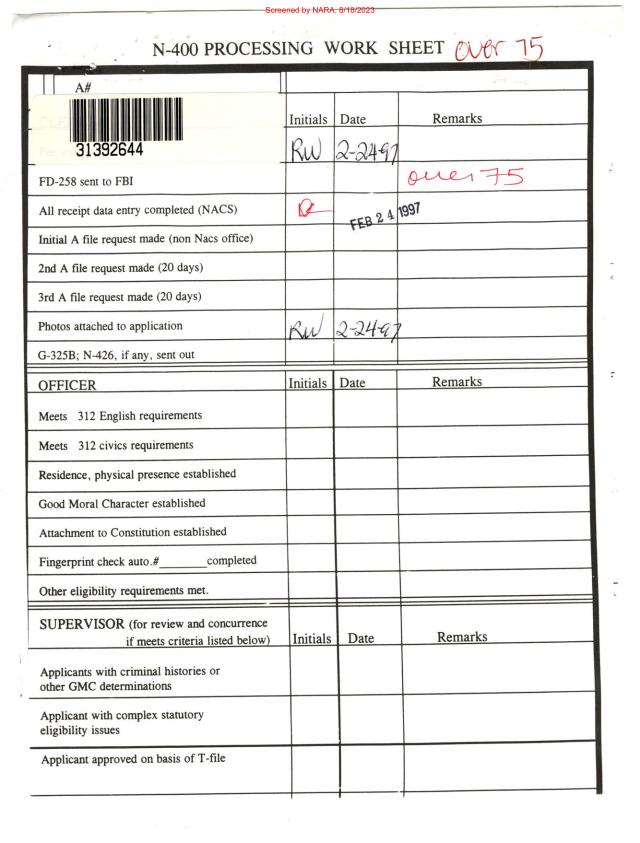 Screened by NARA, 8/18/2023
N-400 PROCESSING WORK SHEET over 75
A#
31392644
Initials Date Remarks
RW 2-24-97
FD-258 sent to FBI over 75
All receipt data entry completed (NACS) FEB 24 1997
Initial A file request made (non Nacs office)
2nd A file request made (20 days)
3rd A file request made (20 days)
Photos attached to application RW 2-24-97
G-325B; N-426, if any, sent out
OFFICER Initials Date Remarks
Meets 312 English requirements
Meets 312 civics requirements
Residence, physical presence established
Good Moral Character established
Attachment to Constitution established
Fingerprint check auto.#________completed
Other eligibility requirements met.
SUPERVISOR (for review and concurrence
if meets criteria listed below) Initials Date Remarks
Applicants with criminal histories or
other GMC determinations
Applicant with complex statutory
eligibility issues
Applicant approved on basis of T-file